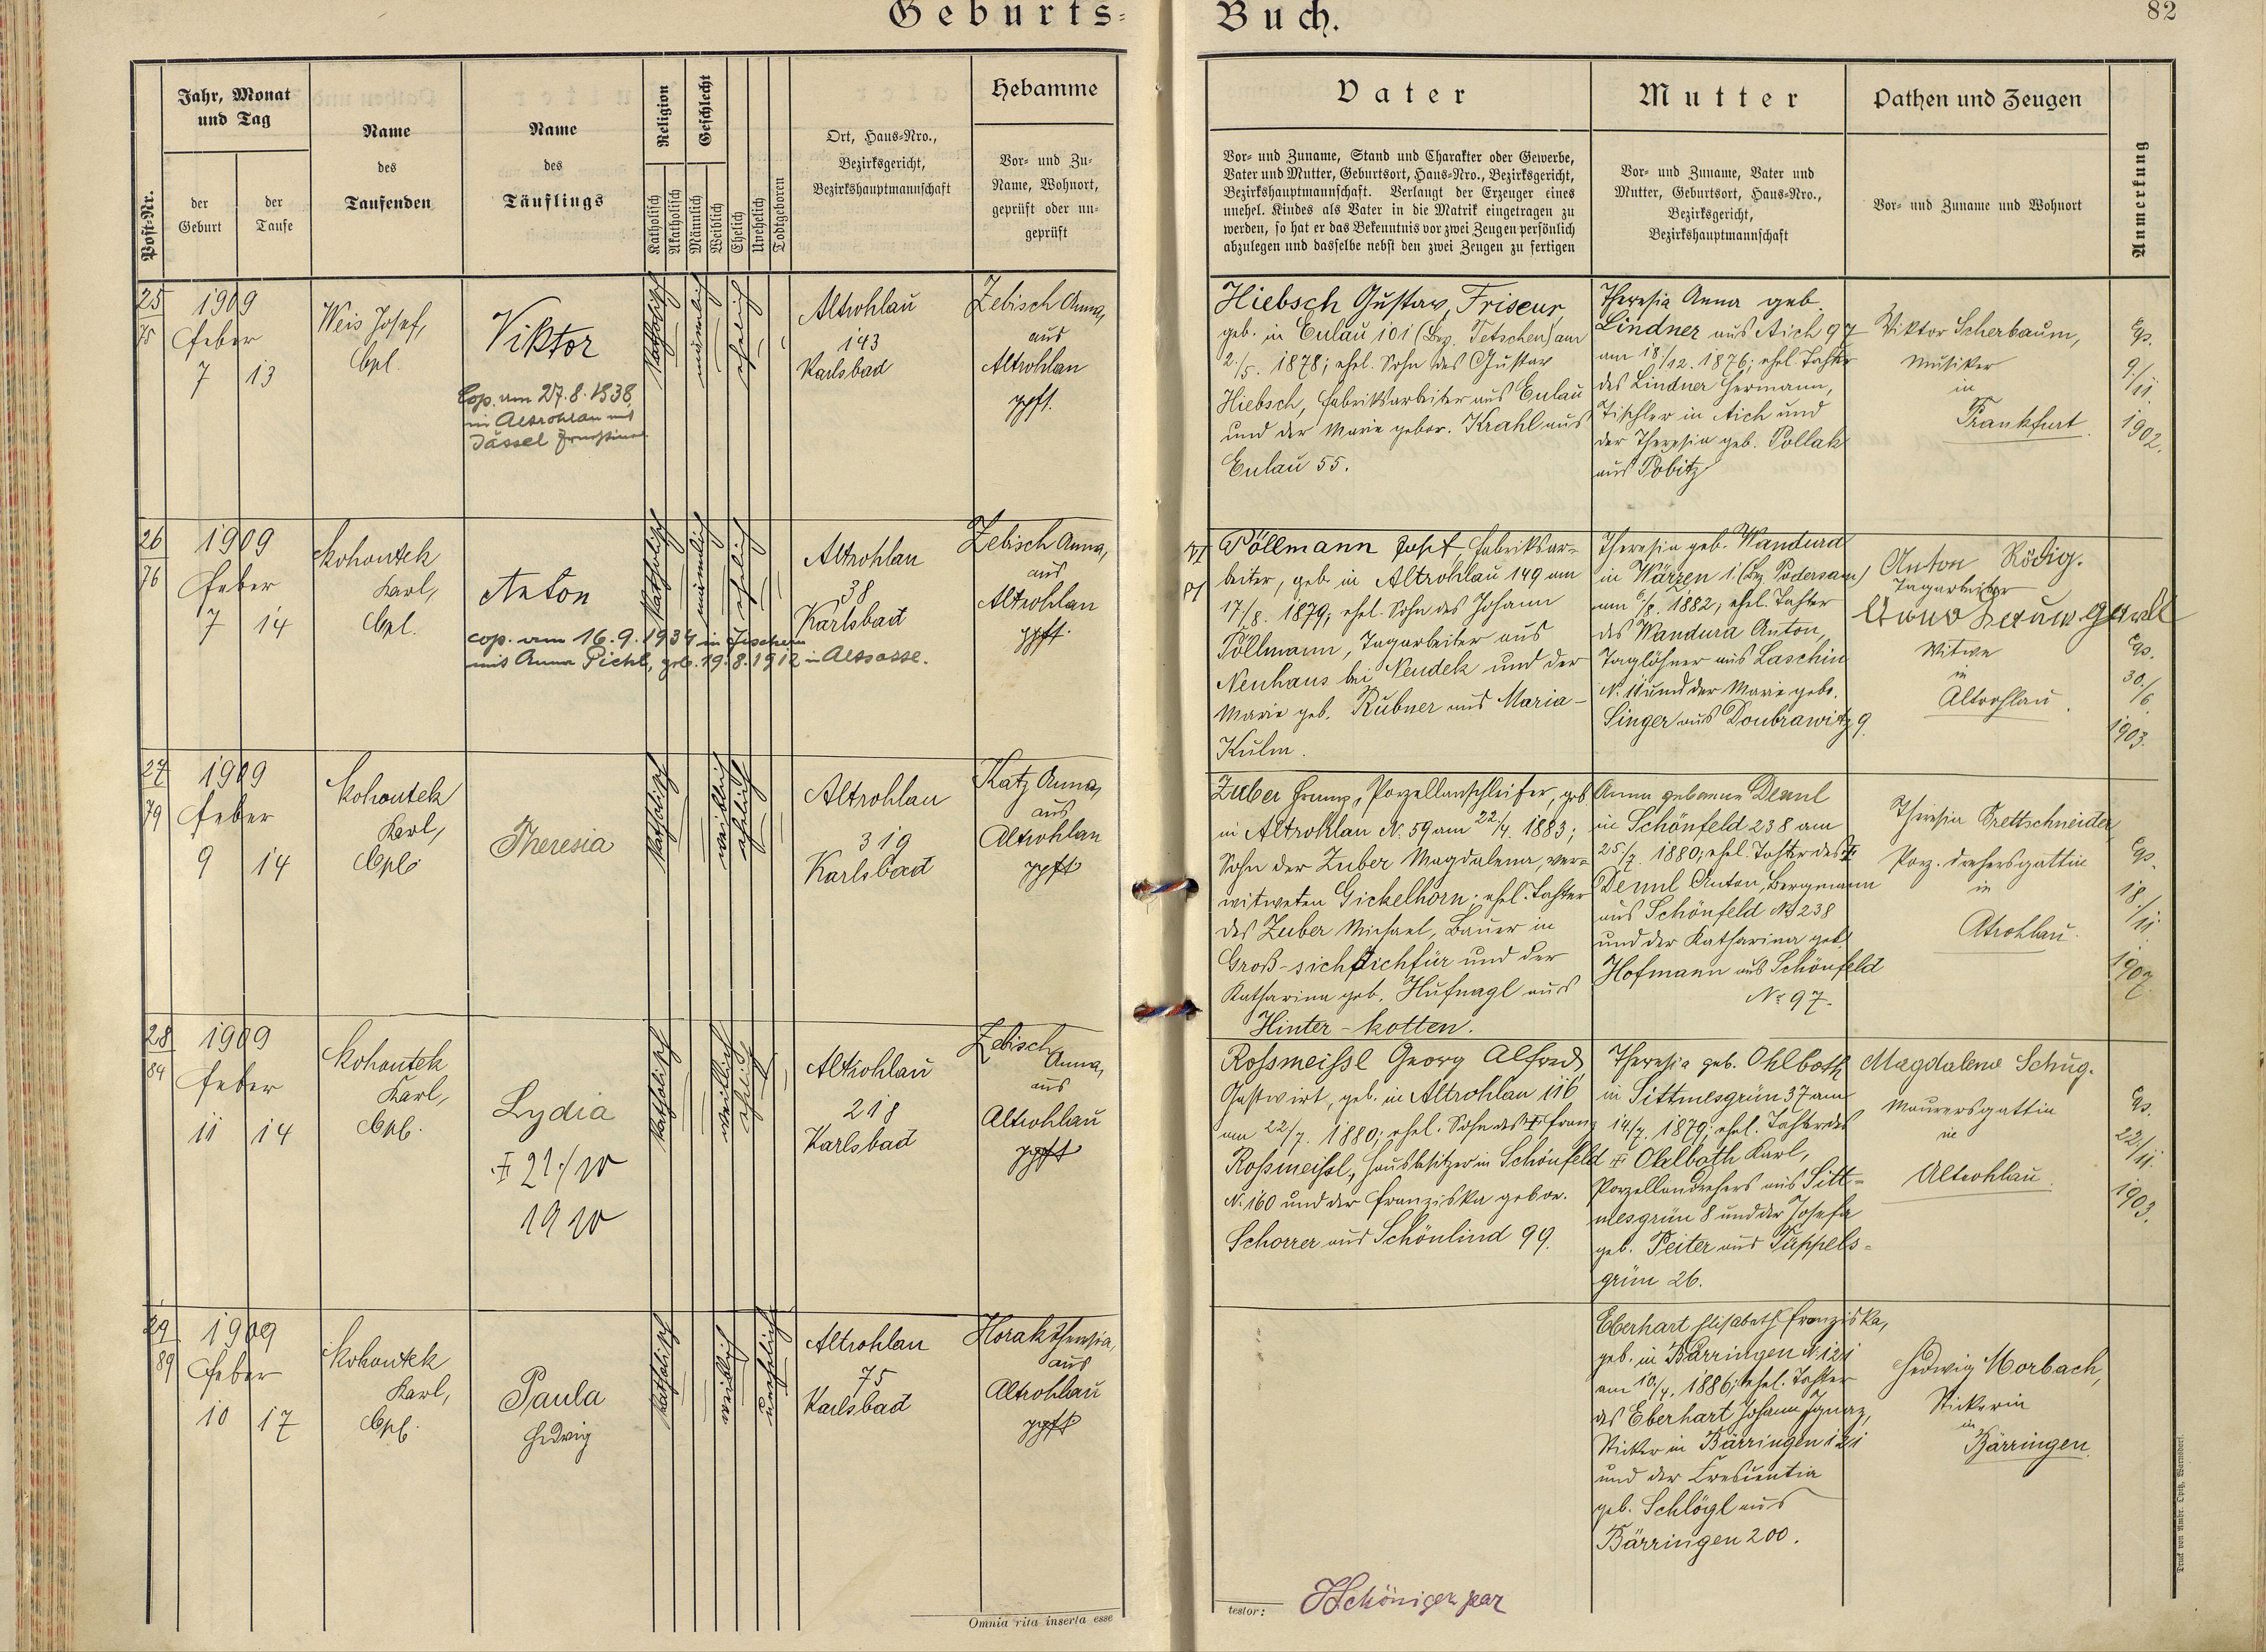 Geburts-Buch.
82
Post-Nr.
Jahr, Monat
und Tag
der
Geburt
der
Taufe
Name
des
Taufenden
Name
des
Täuflings
Religion
Katholisch
Akatholisch
Geschlecht
Männlich
Weiblich
Ehelich
Unehelich
Todtgeboren
Ort, Haus-Nro.,
Bezirksgericht,
Bezirkshauptmannschaft
Hebamme
Vor- und Zu-
Name, Wohnort,
geprüft oder un-
geprüft
Vater
Vor- und Zuname, Stand und Charakter oder Gewerbe,
Vater und Mutter, Geburtsort, Haus-Nro., Bezirksgericht,
Bezirkshauptmannschaft. Verlangt der Erzeuger eines
unehel. Kindes als Vater in die Matrik eingetragen zu
werden, so hat er das Bekenntnis vor zwei Zeugen persönlich
abzulegen und dasselbe nebst den zwei Zeugen zu fertigen
Mutter
Vor- und Zuname, Vater und
Mutter, Geburtsort, Haus-Nro.,
Bezirksgericht,
Bezirkshauptmannschaft
Pathen und Zeugen
Vor- und Zuname und Wohnort
Anmerkung
25
75
1909
Feber
7 13
Weis Josef,
Cpl.
Viktor
Cop. am 27.8.1938
in Altrohlau mit
Jässel
katholisch
männlich
ehelich
Altrohlau
143
Karlsbad
Zebisch Anna,
aus
Altrohlau
gpft.
Hiebsch Gustav, Friseur,
geb. in Eulau 101 (Bez. Tetschen) am
2./5. 1878; ehel. Sohn des Gustav
Hiebsch, Fabriksarbeiter aus Eulau
und der Marie gebor. Krahl aus
Eulau 55.
Theresia Anna geb.
Lindner aus Aich 97
am 18./12. 1876; ehel. Tochter
des Lindner Hermann,
Tischler in Aich und
der Theresia geb. Pollak
aus Pobitz
Viktor Scherbaum,
Musiker
in
Frankfurt.
Cop.
9./11.
1902.
26
76
1909
Feber
7 14
Kohoutek
Karl,
Cpl.
Anton
cop. am 16.9.1934 in Fischern
mit Anna Pichl, geb. 19.8.1912 in
katholisch
männlich
ehelich
Altrohlau
38
Karlsbad
Zebisch Anna,
aus
Altrohlau
gpft.
Pöllmann Josef, Fabriksar-
beiter, geb. in Altrohlau 149 am
17./8. 1879, ehel. Sohn des Johann
Pöllmann, Tagarbeiter aus
Neuhaus bei Neudek und der
Marie geb. Rubner aus Maria-
Kulm.
Theresia geb. Wandura
in Wärzen 1. (Bez. Podersam)
am 6./8. 1882, ehel. Tochter
des Wandura Anton,
Taglöhner aus Laschin
N. 11 und der Marie gebr.
Singer aus Doubrawitz 9.
Anton Rödig.
Tagarbeiter
Witwe
in
Altrohlau.
Cop.
30./6.
1903.
27
79
1909
Feber
9 14
Kohoutek
Karl,
Cpl.
Theresia
katholisch
weiblich
ehelich
Altrohlau
319
Karlsbad
Katz Anna,
aus
Altrohlau
gpft
Zuber Franz, Porzellanschleifer, geb.
in Altrohlau N. 59 am 22./4. 1883;
Sohn der Zuber Magdalena, ver-
witweten Gickelhorn; ehel. Tochter
des Zuber Michael, Bauer in
Groß-sichdichfür und der
Katharina geb. Hufnagl aus
Hinter-kotten.
Anna geborne Deml
in Schönfeld 238 am
25./7. 1880; ehel. Tochter des ‡
Deml Anton, Bergmann
aus Schönfeld N. 238
und der Katharina geb.
Hofmann aus Schönfeld
N. 97.
Theresia Prettschneider,
Porz. drehersgattin
in
Atrohlau.
Cop.
18./11.
1907.
28
84
1909
Feber
11 14
Kohoutek
Karl,
Cpl.
Lydia
‡ 21./10
1910
katholisch
weiblich
ehelich
Altrohlau
218
Karlsbad
Zebisch
Anna,
aus
Altrohlau
gpft
Roßmeißl Georg Alfred,
Gastwirt, geb. in Altrohlau 116
am 22./7. 1880; ehel. Sohn des ‡ Franz
Roßmeißl, Hausbesitzer in Schönfeld
N. 160 und der Franziska gebor.
Schorrer aus Schönlind 99.
Theresia geb. Ohlboth
in Sittmesgrün 37 am
14./7. 1879; ehel. Tochter des
‡ Ohlboth Karl,
Porzellandrehers aus Sitt-
mesgrün 8 und der Josefa
geb. Peiter aus Tüppels-
grün 26.
Magdalena Schug.
Maurersgattin
in
Altrohlau.
Cop.
22./11.
1903.
29
89
1909
Feber
10 17
Kohoutek
Karl,
Cpl.
Paula
Hedwig
katholisch
weiblich
unehelich
Altrohlau
75
Karlsbad
Horak Theresia,
aus
Altrohlau
gpft
Eberhart Elisabeth Franziska,
geb. in Bärringen N. 121
am 10./4. 1886; ehel. Tochter
des Eberhart Johann Ignaz,
Sticker in Bärringen 121
und der Crescentia
geb. Schlögl aus
Bärringen 200.
Hedwig Morbach,
Stickerin
in
Bärringen.
Omnia rita inserta esse
testor:
Druck von Ambr. Opitz, Warnsdorf.